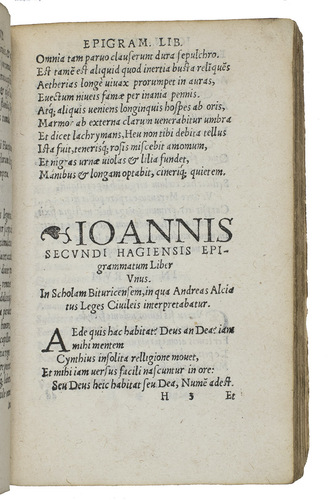 EPIGRAM. LIB.
Omnia tam paruo clauserunt dura sepulchro.
Est tamē est aliquid quod inertia busta reliquēs
Aetherias longè viuax prorumpet in auras,
Euectum niueis famæ per inania pennis.
Atq; aliquis veniens longinquis hospes ab oris,
Marmor ab externa clarum venerabitur vmbra
Et dicet lachrymans, Heu non tibi debita tellus
Ista fuit, tenerisq; rosis miscebit amomum,
Et nigras vrnæ violas & lilia fundet,
Manibus & longam optabit, cineriq; quietem.
IOANNIS
SECVNDI HAGIENSIS EPI-
grammatum Liber
Vnus.
In Scholam Bituricensem, in qua Andreas Alcia
tus Leges Ciuileis interpretabatur.
AEde quis hac habitat? Deus an Dea? iam
mihi mentem
Cynthius insolita relligione mouet,
Et mihi iam versus facili nascuntur in ore:
Seu Deus heic habitat seu Dea, Numē adest.
H 3 Et